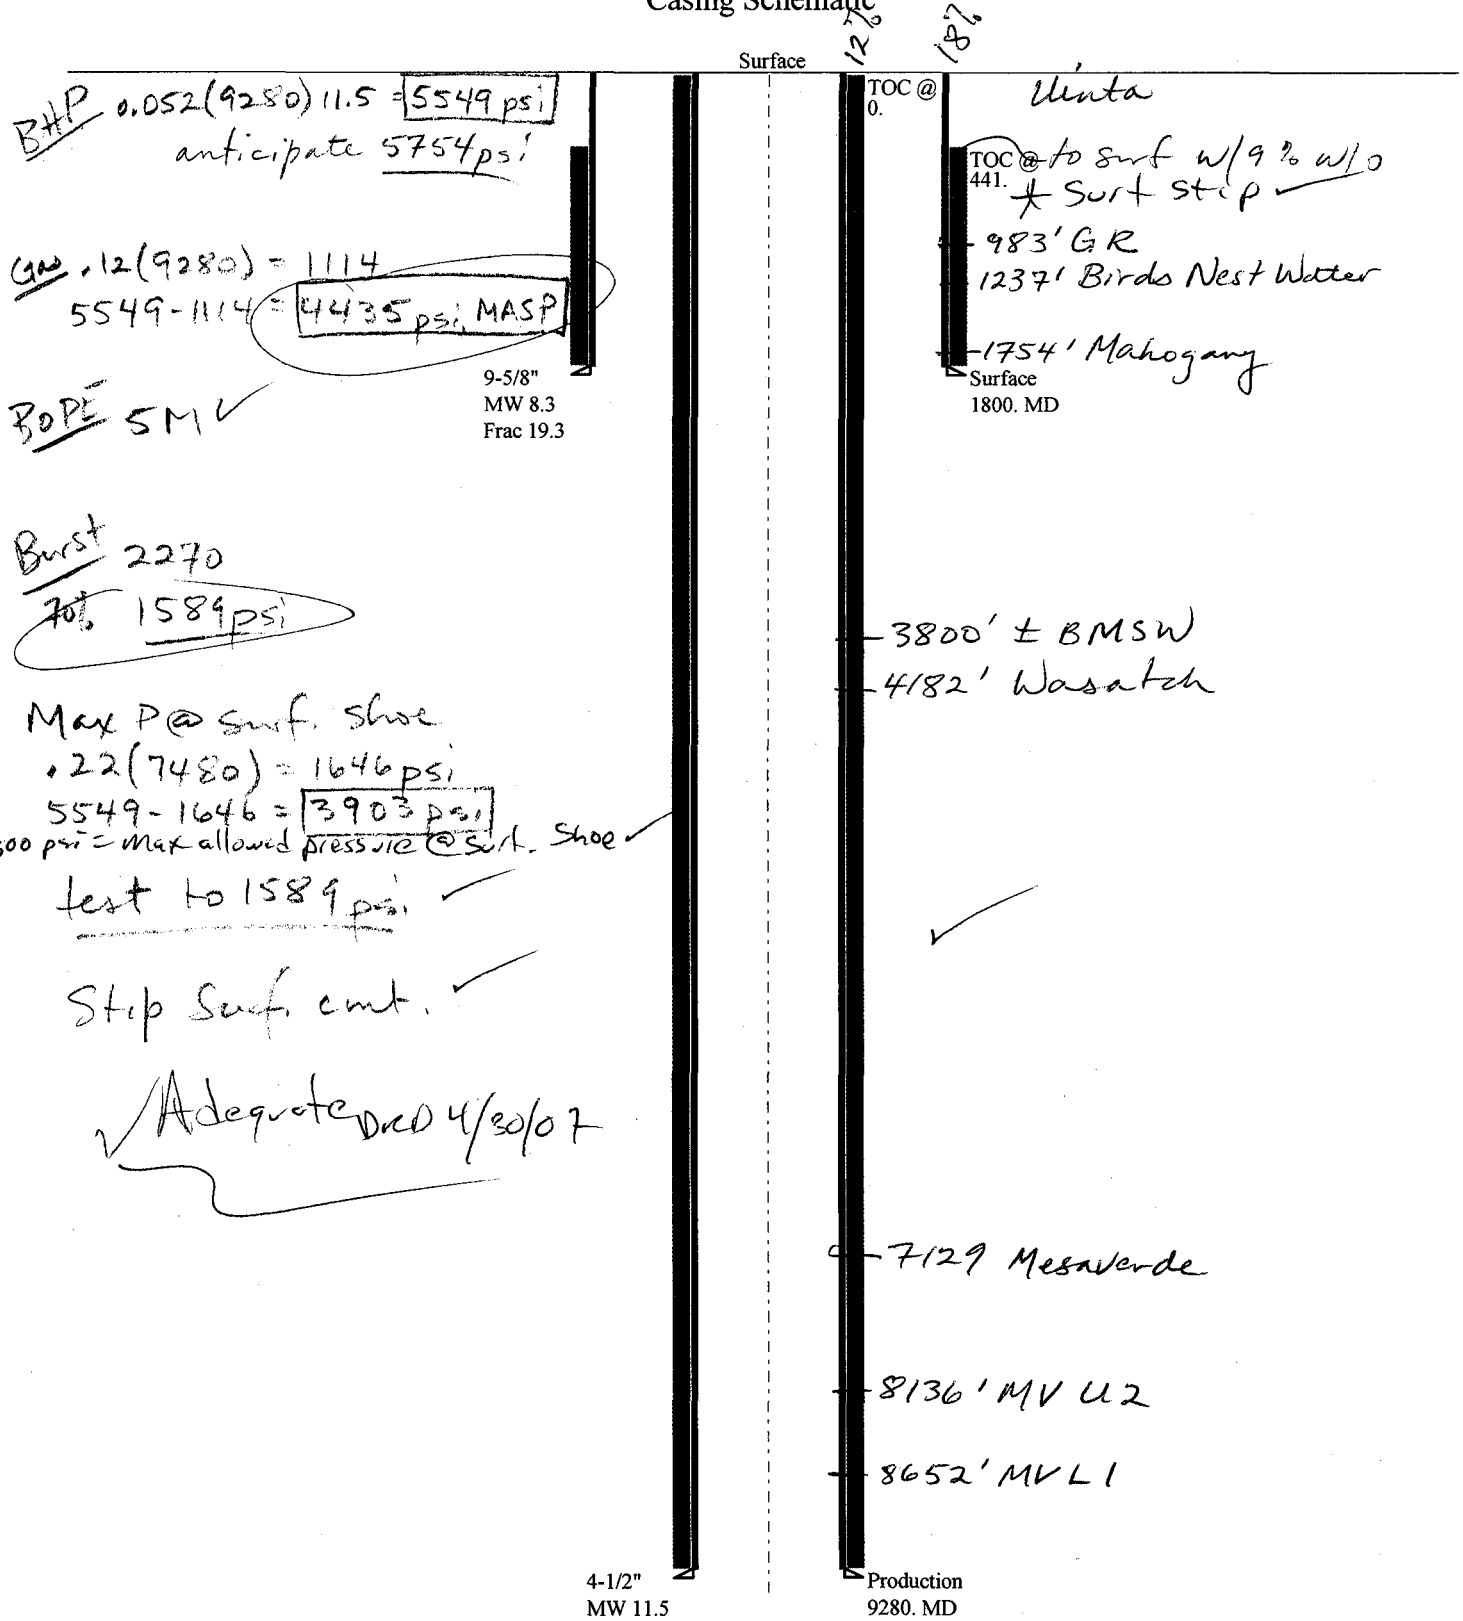 Casing Schematic
12%
18%
Surface
BHP 0.052(9280)11.5 = 5549 psi
anticipate 5754psi
Gas .12(9280) = 1114
5549-1114 = 4435 psi, MASP
BOPE 5M ✓
9-5/8"
MW 8.3
Frac 19.3
Burst 2270
70% 1589psi
Max P@ surf. shoe
.22(7480) = 1646psi
5549-1646 = 3903 psi
00 psi = Max allowed pressure @ Surf. Shoe ✓
test to 1589 psi ✓
Stip Surf. cmt. ✓
✓ Adequate DKD 4/30/07
TOC @
0.
Uinta
TOC @ to surf w/9% w/o
441.
* Surf stip ✓
983' GR
1237' Birds Nest Water
1754' Mahogany
Surface
1800. MD
3800' ± BMSW
4182' Wasatch
✓
7129 Mesaverde
8136' MV U2
8652' MV L1
4-1/2"
MW 11.5
Production
9280. MD